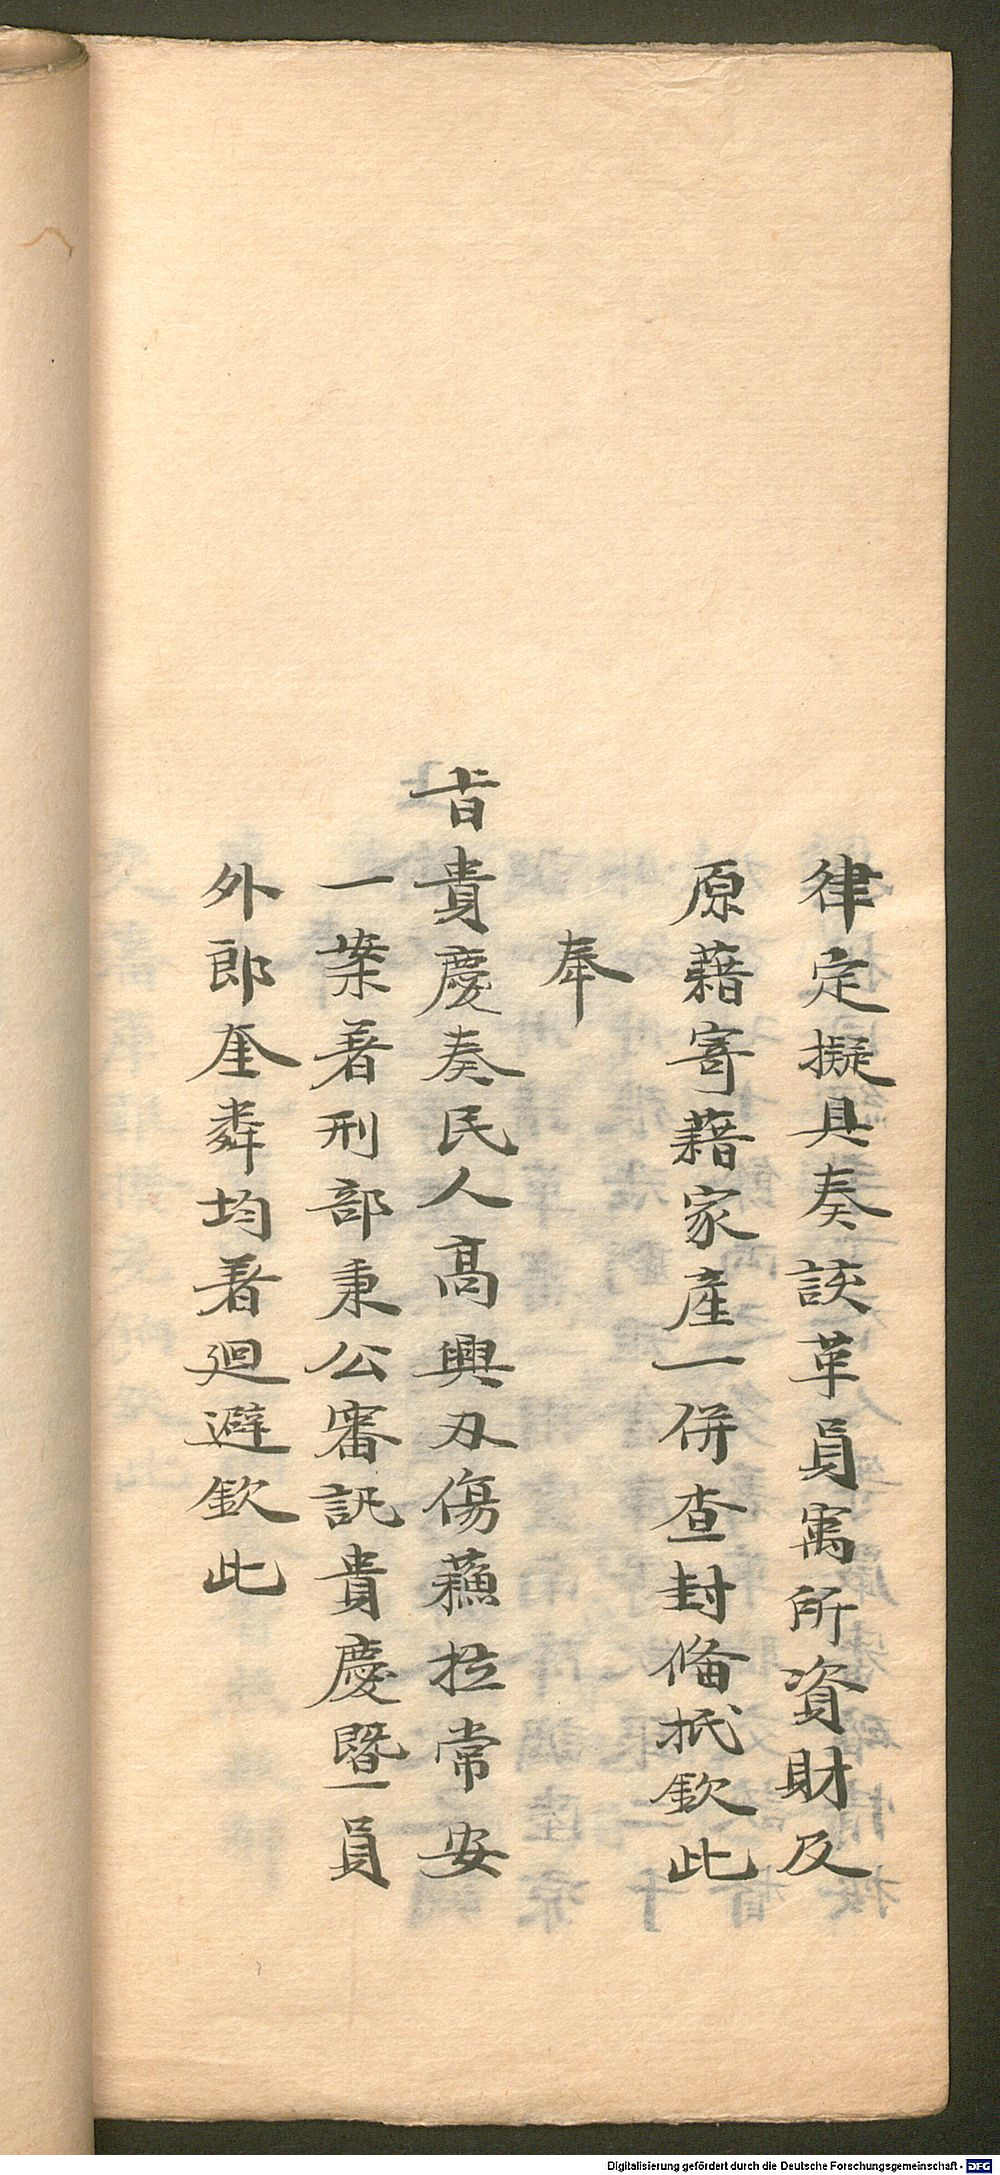 律定擬具奏該革員寓所資財及
原藉寄藉家產一併查封俻抵欽此
奉
旨貴慶奏民人高興刃傷蘓拉常安
一案著刑部秉公審訊貴慶暨員
外郎奎粦均著迴避欽此
Digitalisierung gefördert durch die Deutsche Forschungsgemeinschaft - DFG